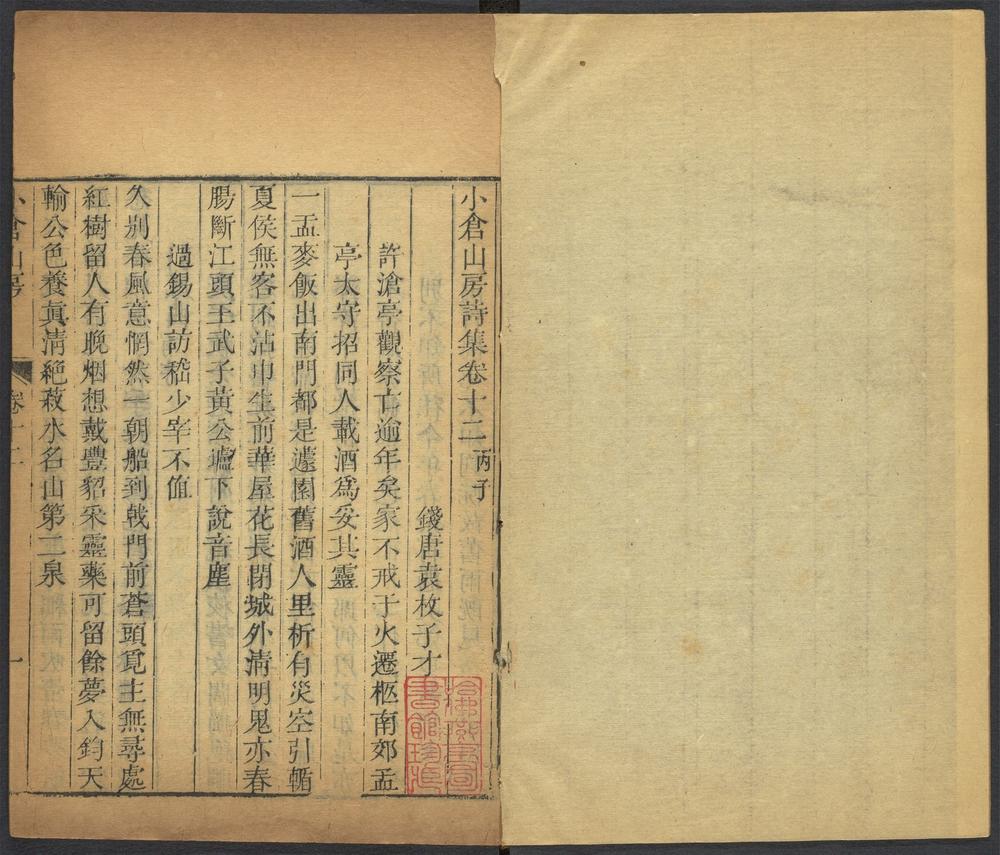 小倉山房詩集卷十二 丙子
錢唐袁枚子才
許滄亭觀察亡逾年矣家不戒于火遷柩南郊孟
亭太守招同人載酒爲妥其靈
一盂麥飯出南門都是蘧園舊酒人里析有災空引輴
夏侯無客不沾巾生前華屋花長閉城外清明鬼亦春
腸斷江頭王武子黃公壚下說音塵
過錫山訪嵇少宰不值
久別春風意惘然一朝船到戟門前蒼頭覓主無尋處
紅樹留人有晚烟想戴豐貂采靈藥可留餘夢入鈞天
輸公色養眞清絕菽水名山第二泉
小倉山房
卷十二
一